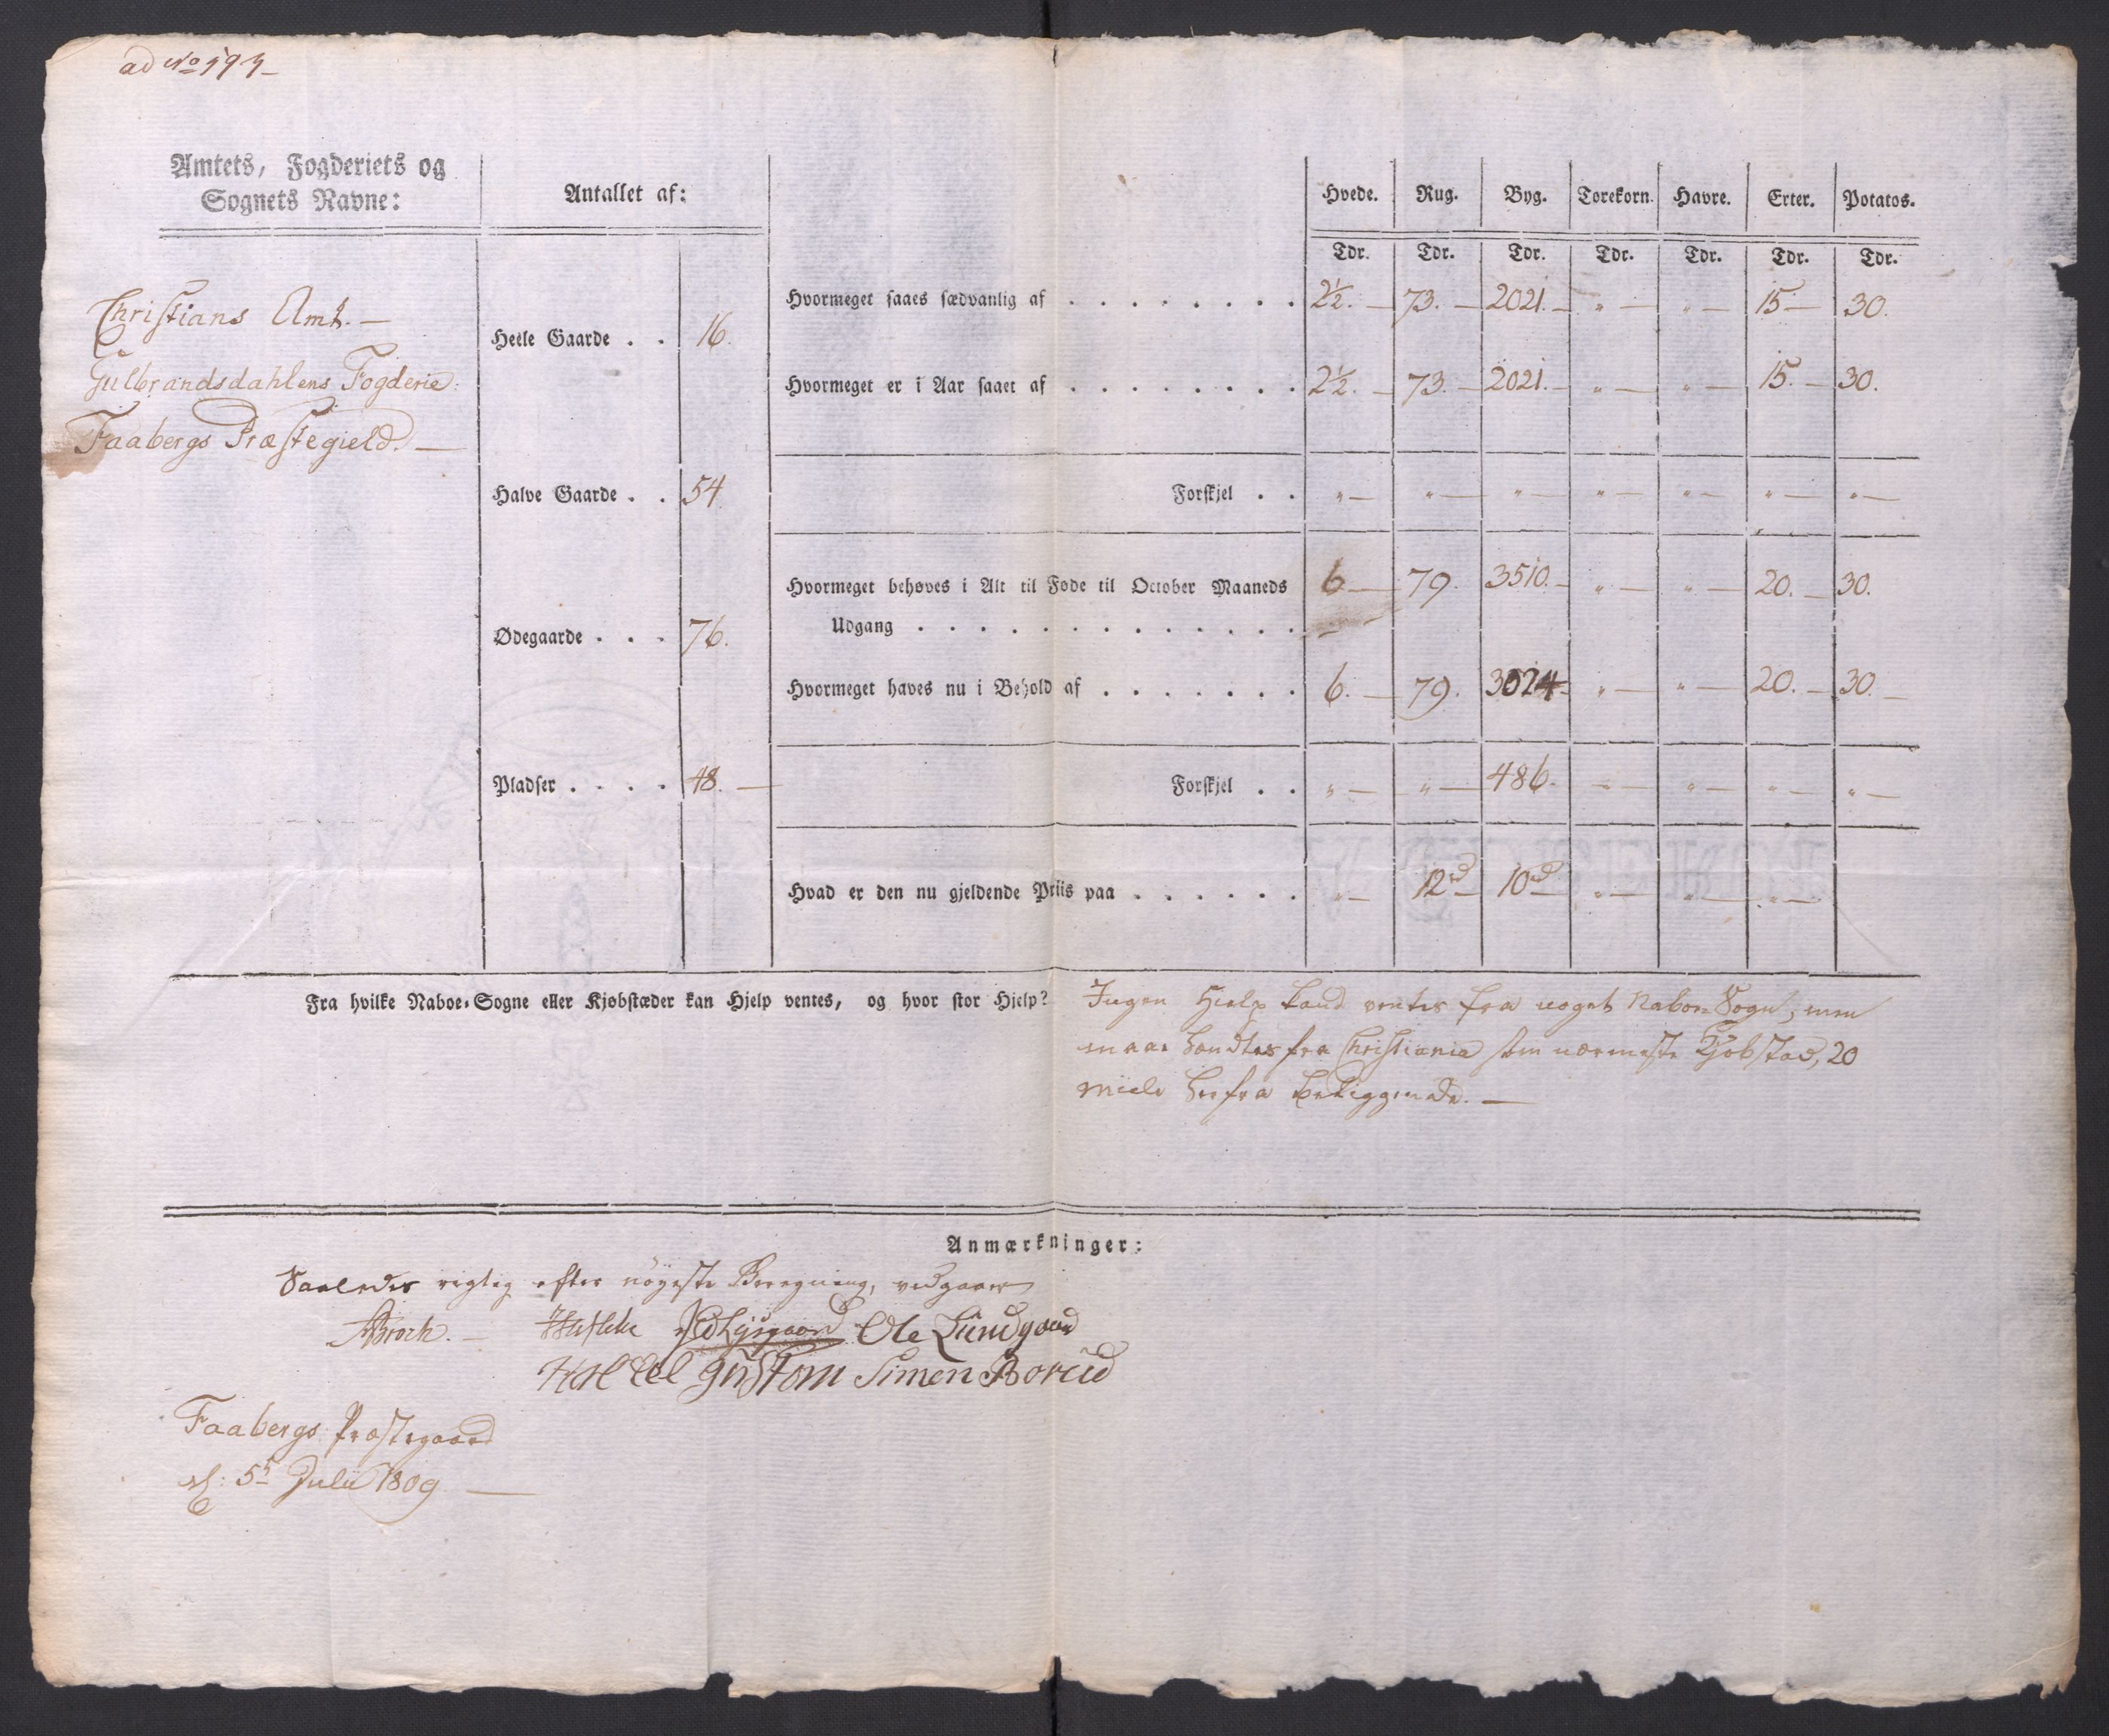 ad No
Amtets, Fogderiets og
Sognets Navne:
Antallet af:
Hvede. Rug. Byg. Torekorn. Havre. Erter. Potatos.
Tdr. Tdr. Tdr. Tdr. Tdr. Tdr. Tdr.
Christians Amt. —
Gulbrandsdahlens Fogderie.
Faabergs Præstegield. —
Heele Gaarde . . 16.
Halve Gaarde . . 54.
Ødegaarde . . . 76.
Pladser . . . . 48. —
Hvormeget saaes sædvanlig af . . . . . . . . 2½. — 73. — 2021. — " — " — 15 — 30.
Hvormeget er i Aar saaet af . . . . . . . . 2½. — 73. — 2021. — " — " — 15. — 30.
Forskjel . . " — " — " — " — " — " — " —
Hvormeget behøves i Alt til Føde til October Maaneds 6 — 79. 3510. — " — " — 20. — 30.
Udgang . . . . . . . . . . . . .
Hvormeget haves nu i Behold af . . . . . . . 6. — 79. 3024 — " — " — 20. — 30. —
Forskjel . . " — " — 486. — " — " — " —
Hvad er den nu gjeldende Priis paa . . . . . . " — 12rd — 10rd — " — " — " —
Fra hvilke Naboe-Sogne eller Kjøbstæder kan Hjelp ventes, og hvor stor Hjelp?
Ingen Hielp kand ventes fra noget Naboe-Sogn, men
maae hendtes fra Christiania som nærmeste Kjøbstad, 20
Miele herfra beliggende. —
Anmærkninger:
Saaledes rigtig efter nøyeste Beregning, vedgaaer
Broch. — Lysgaard Ole Lundgaard
Simen Borud
Faabergs Præstegaard
d: 5te Julii 1809 —